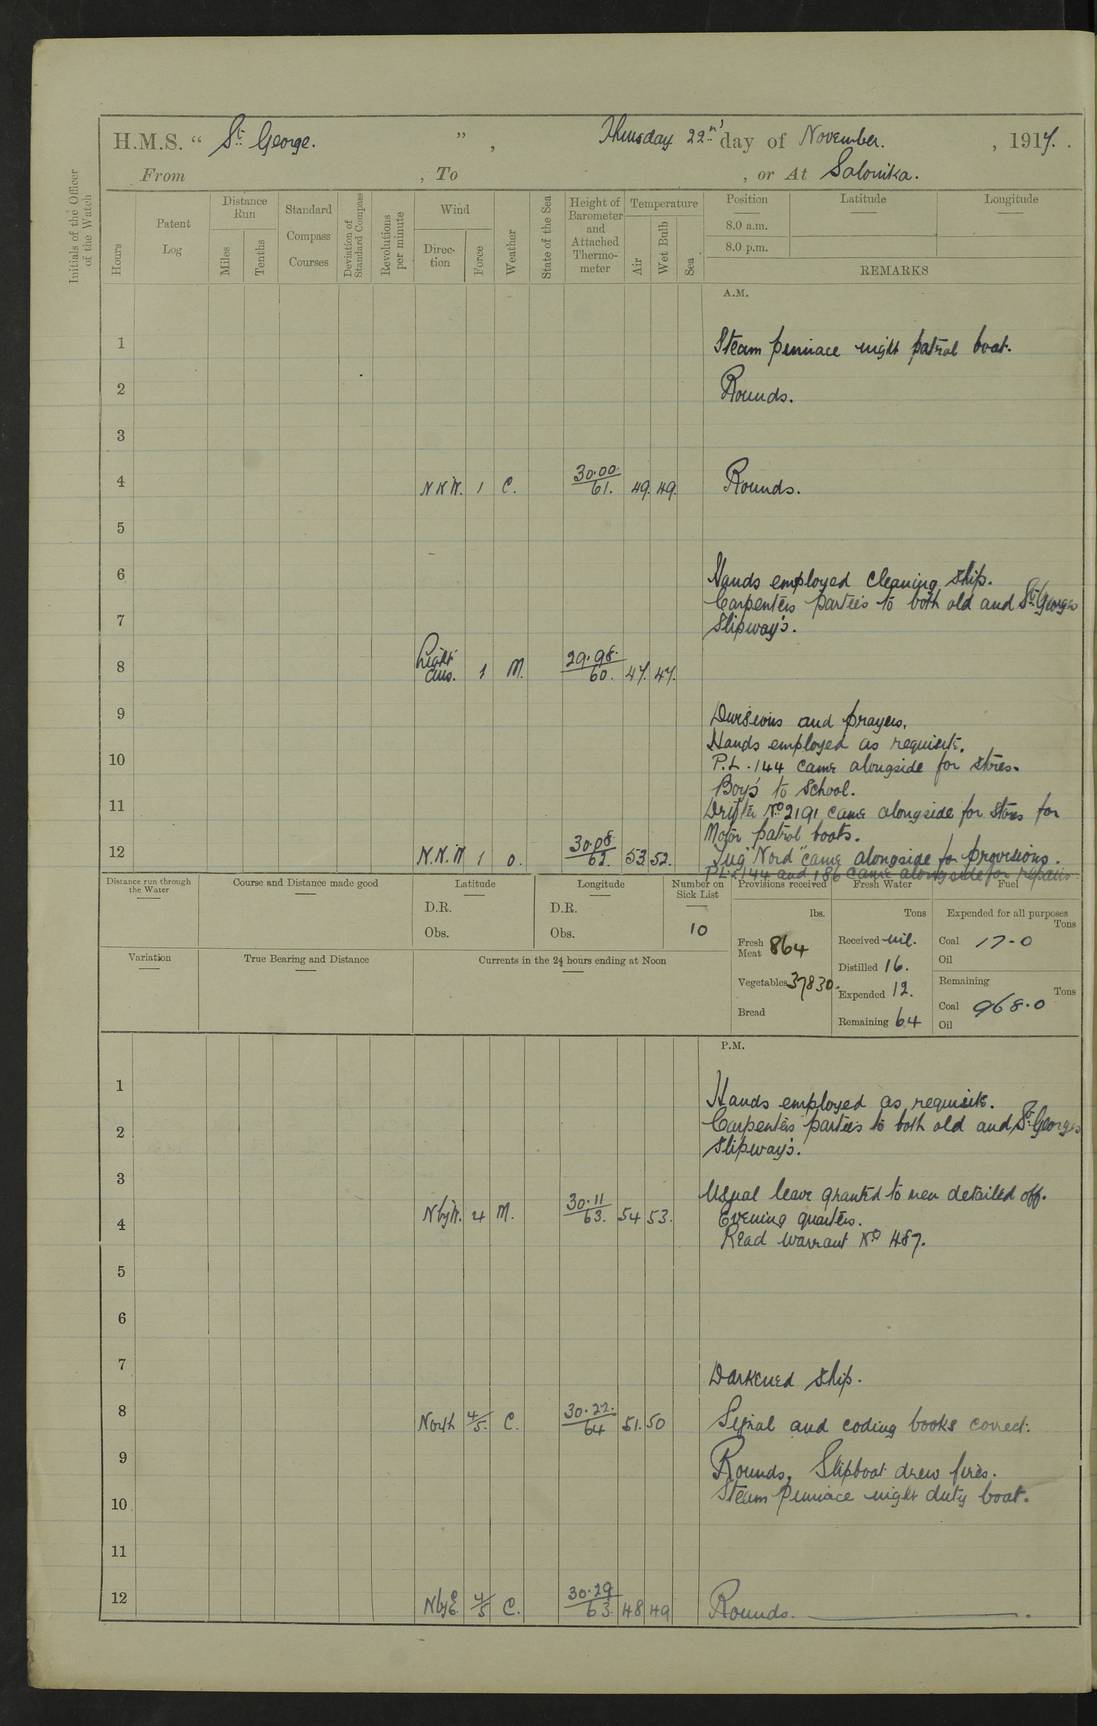 H.M.S. “ St. George. ”, Thursday 22nd day of November. , 1917. .
From , To , or At Salonika.
Initials of the Officer of the Watch
Hours
Patent Log
Distance Run
Miles
Tenths
Standard Compass Courses
Deviation of Standard Compass
Revolutions per minute
Wind
Direc-tion
Force
Weather
State of the Sea
Height of Barometer and Attached Thermo-meter
Temperature
Air
Wet Bulb
Sea
Position
8.0 a.m.
8.0 p.m.
Latitude
Longitude
REMARKS
A.M.
1 Steam pinnace night patrol boat.
2 Rounds.
3
4 N N W. 1 C. 30.00. 61. 49. 49. Rounds.
5
6 Hands employed cleaning ship.
Carpenters parties to both old and St. Georges
7 Slipway's.
8 Light airs. 1 M. 29.98. 60. 47. 47.
9 Divisions and prayers.
Hands employed as requisite.
10 P.L. 144 came alongside for stores.
Boy's to School.
11 Drifter No 2191 came alongside for Stores for
Motor patrol boats.
12 N.N.W 1 O. 30.08. 62. 53 52. Tug "Nord" came alongside for provisions.
P.L's 144 and 186 came alongside for repairs
Distance run through the Water
Course and Distance made good
Latitude
D.R.
Obs.
Longitude
D.R.
Obs.
Number on Sick List
10
Provisions received
lbs.
Fresh Meat 864
Vegetables 37830.
Bread
Fresh Water
Tons
Received nil.
Distilled 16.
Expended 12.
Remaining 64
Fuel
Expended for all purposes
Tons
Coal 17-0
Oil
Remaining
Tons
Coal 968.0
Oil
Variation
True Bearing and Distance
Currents in the 24 hours ending at Noon
P.M.
1 Hands employed as requisite.
2 Carpenters parties to both old and St. Georges
Slipway's.
3 Usual leave granted to men detailed off.
4 N by W. 4 M. 30.11 63. 54 53. Evening quarters.
Read warrant No 487.
5
6
7 Darkened ship.
8 North 4/5. C. 30.22. 64 51. 50 Signal and coding books correct.
9 Rounds, Slipboat drew fires.
10 Steam Pinnace night duty boat.
11
12 N by E. 4/5 C. 30.29 63. 48 49 Rounds.